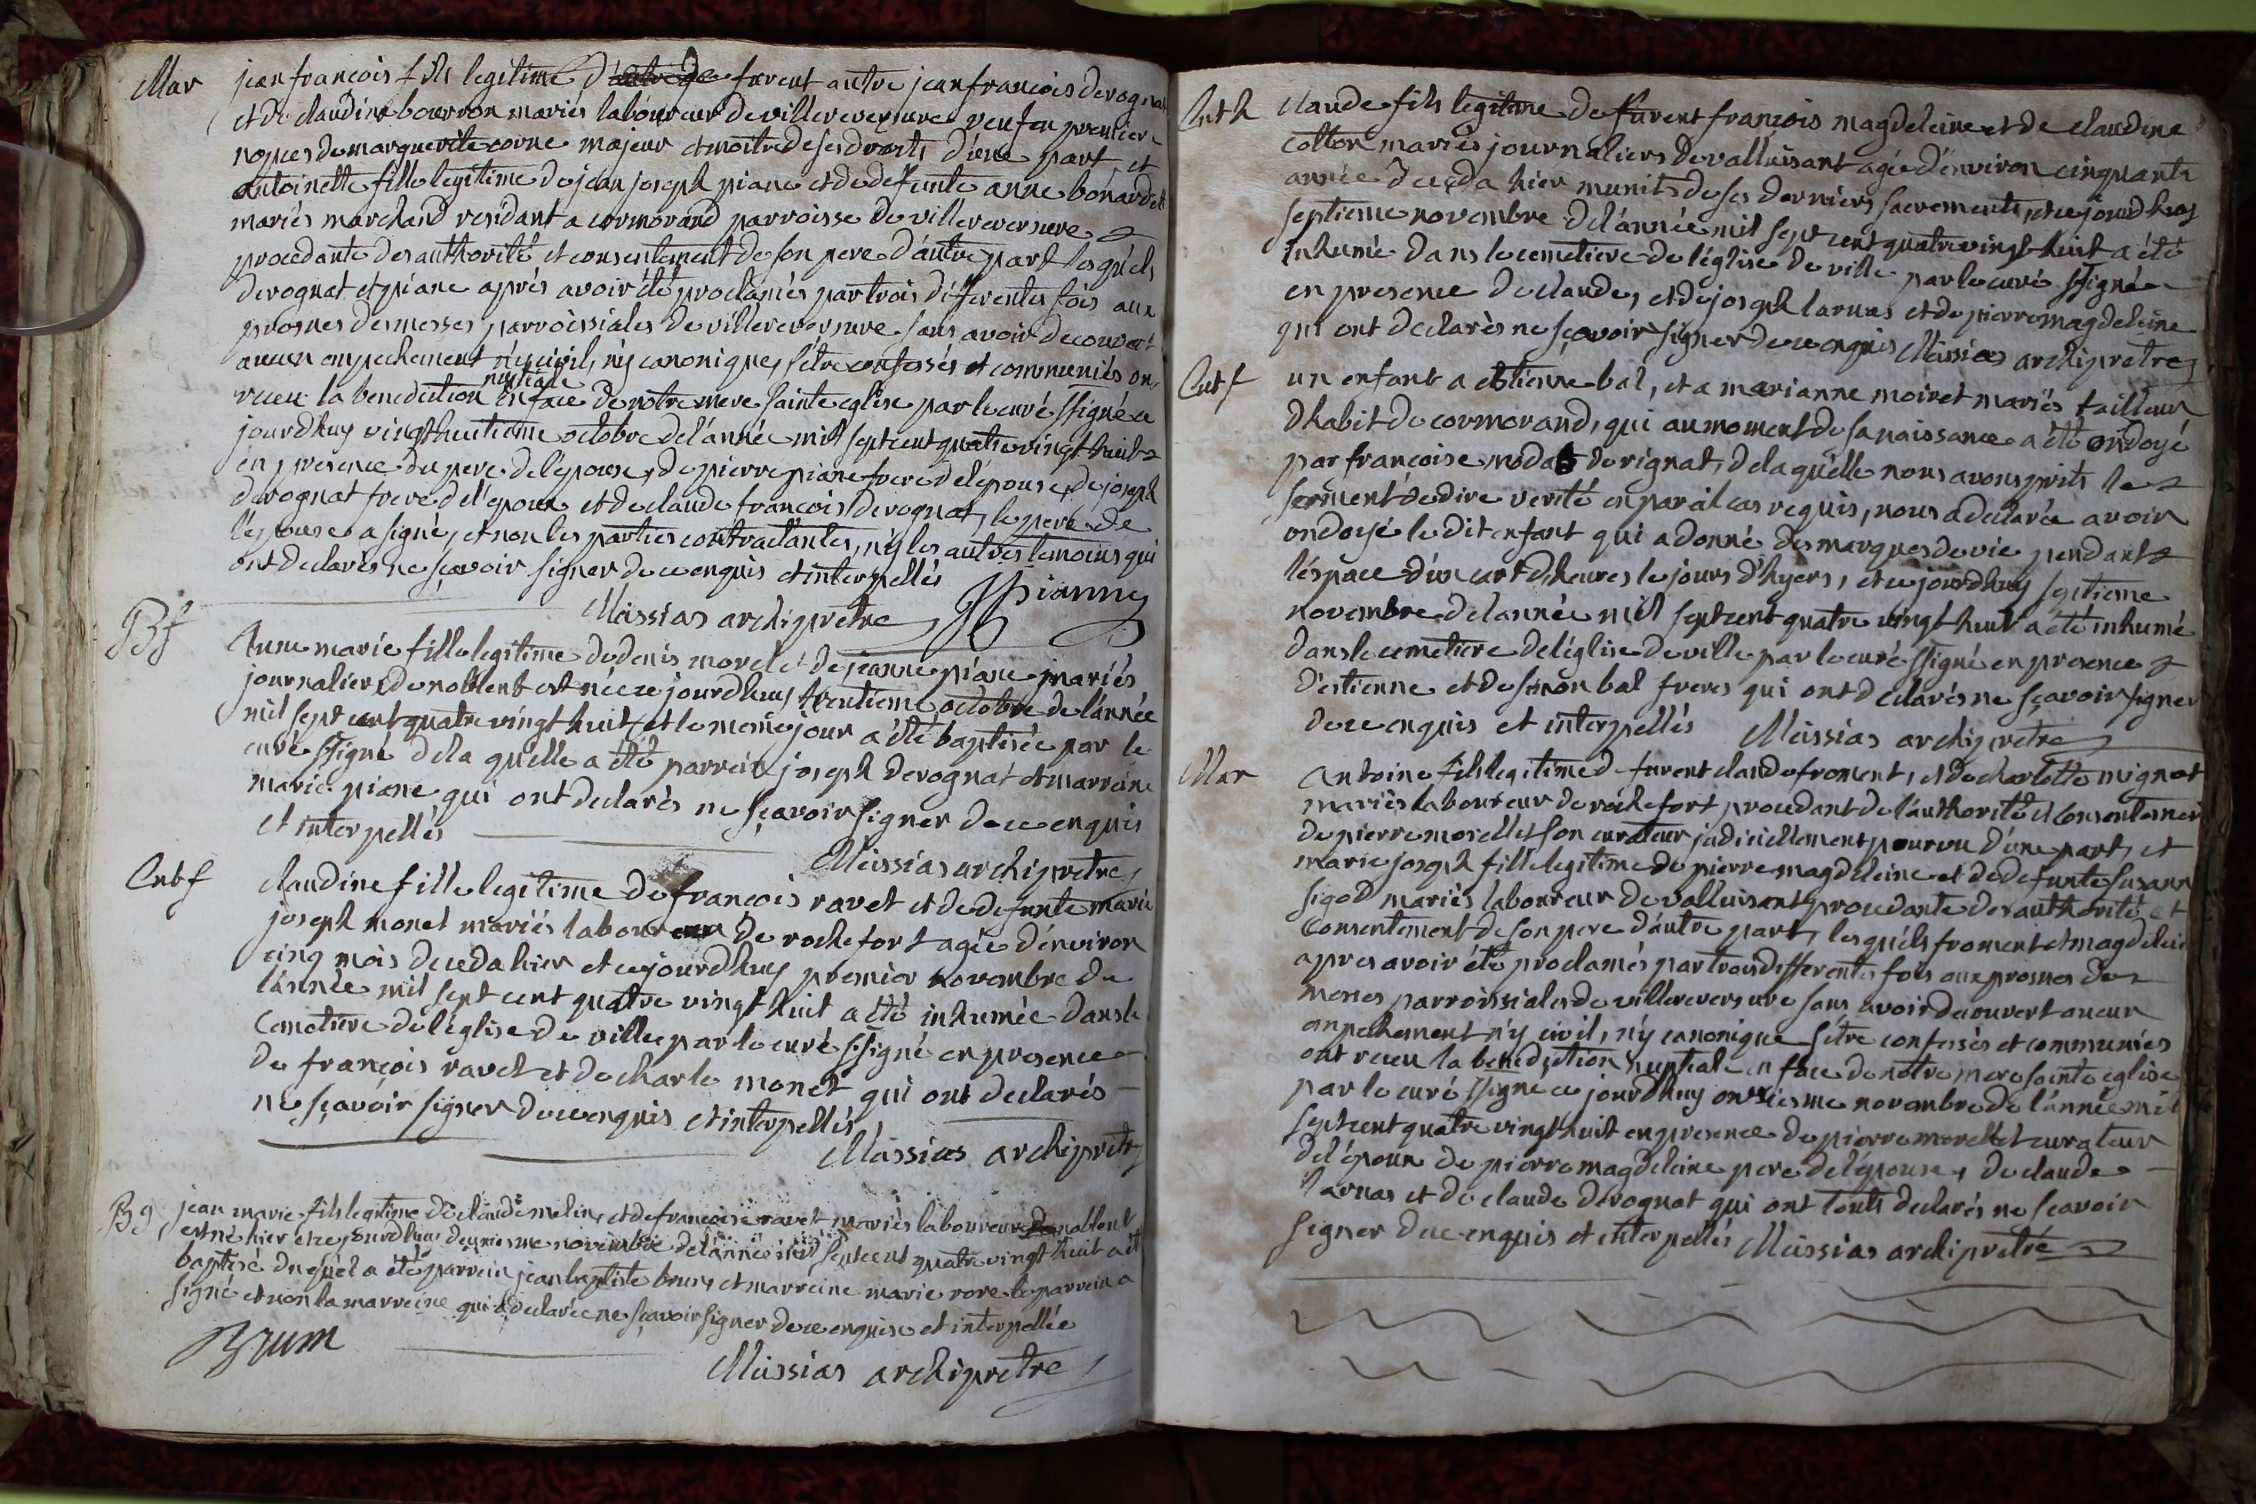 Mar
jean francois fils legitime d' furent autre jean francois derognat
et de claudine bourron mariés laboureur de villereversure veuf en premiere
nopces de marguerite corne majeur et moitre de ses droits d'une part et
antoinette fille legitime de jean joseph piane et de deffunte anne bonardet
mariés marchand residant a cormorand parroisse de villereversure
procedante des authorité et consentement de son pere d'autre part lesquels
derognat et piane aprés avoir été proclamés par trois differentes fois aux
prosnes des messes parroissiales de villereversure sans avoir decouvert
aucun enpechement n'y civil, n'y canonique, s'être confessés et communiés ont
receu la benediction nuptiale en face de notre mere sainte eglise par le curé ssigné ce
jourdhuy vingthuitieme octobre de l'année mil sept cent quatre vingt huit
en presence du pere de l'epouse, de pierre piane frere de l'epouse, de joseph
derognat frere de l'epoux et de claude francois derognat, le pere de
l'epouse a signé, et non les parties contractantes, n'y les autres temoins qui
ont declarés ne sçavoir signer de ce enquis et interpellés
Massias archipretre
JJ pianne
Bf
Anne marie fille legitime de denis morel et de jeanne piane mariés
journalier de noblent est née ce jourdhuy trentieme octobre de l'année
mil sept cent quatre vingt huit, et le meme jour a été baptisée par le
curé ssigné de la quelle a été parrein joseph derognat et marreine
marie piane qui ont declarés ne sçavoir signer de ce enquis
et interpellés
Massias archipretre
Entf
claudine fille legitime de françois ravet et de defunte marie
joseph monet mariés laboureur de rochefort agée d'environ
cinq mois deceda hier et ce jourdhuy premier novembre de
l'année mil sept cent quatre vingt huit a été inhumée dans le
cemetiere de l'église de ville par le curé ssigné en presence
de françois ravet et de charle monet qui ont declarés
ne sçavoir signer de ce enquis et interpellés
Massias archipretre
Bg
jean marie fils legitime de claude melin, et de francoise ravet mariés laboureur de noblent
est né hier et ce jourdhuy deuxiesme novembre de l'année mil sept cent quatre vingt huit a été
baptisé du quel a été parrein jean baptiste brun, et marreine marie rore le parrein a
signé et non la marreine qui a declarée ne sçavoir signer de ce enquise et interpellée
Brum
Massias archipretre
Enth
claude fils legitime de ffurent françois magdeleine et de claudine
cotton mariés journaliers de valluisant agée d'environ cinquante
année deceda hier munits de ses derniers sacrements, et ce jourdhuy
septieme novembre de l'année mil sept cent quatre vingt huit a été
inhumé dans le cemetiere de l'église de ville par le curé ssigné
en presence de claude, et de joseph larnas et de pierre magdeleine
qui ont declarés ne sçavoir signer de ce enquis Massias archipretre
Entf
un enfant a etienne bal, et a marianne moiret mariés tailleur
dhabit de cormorand, qui au moment de sa naissance a été ondoyé
par francoise modas de rignat, de la quelle nous avons prits le
serment de dire verité en parail cas requis, nous a declarée avoir
ondoyé le dit enfant qui a donné des marques de vie pendant
l'espace d'un cart d'heures le jours d'hyers, et ce jourdhuy septieme
novembre de l'année mil sept cent quatre vingt huit a été inhumé
dans le cemetiere de l'église de ville par le curé ssigné en presence
d'estienne et de simon bal freres qui ont declarés ne sçavoir signer
de ce enquis et interpellés Massias archipretre
Mar
Antoine fils legitime d furent claude froment, et de charlotte mignot
mariés laboureur de rochefort, procedant de l'authorité et consentement
de pierre morellet son curateur judiciellement pourvu d'une part, et
marie joseph fille legitime de pierre magdeleine et de defunte susanne
sigod mariés laboureur de valluisant procedante des authorité, et
consentement de son pere d'autre part, lesquels froment et magdeleine
apres avoir été proclamés par trois differentes fois aux prosnes des
messes parroissiales de villereversure sans avoir decouvert aucun
enpechement n'y civil, n'y canonique s'etre confessés et communiés
ont receu la benediction nuptiale en face de notre mere sainte eglise
par le curé ssigné ce jourdhuy onziesme novembre de l'année mil
sept cent quatre vingt huit en presence de pierre morellet curateur
de l'epoux de pierre magdeleine pere de l'epouse, de claude
larnas et de claude derognat qui ont touts declarés ne sçavoir
signer de ce enquis et interpellés Massias archipretre